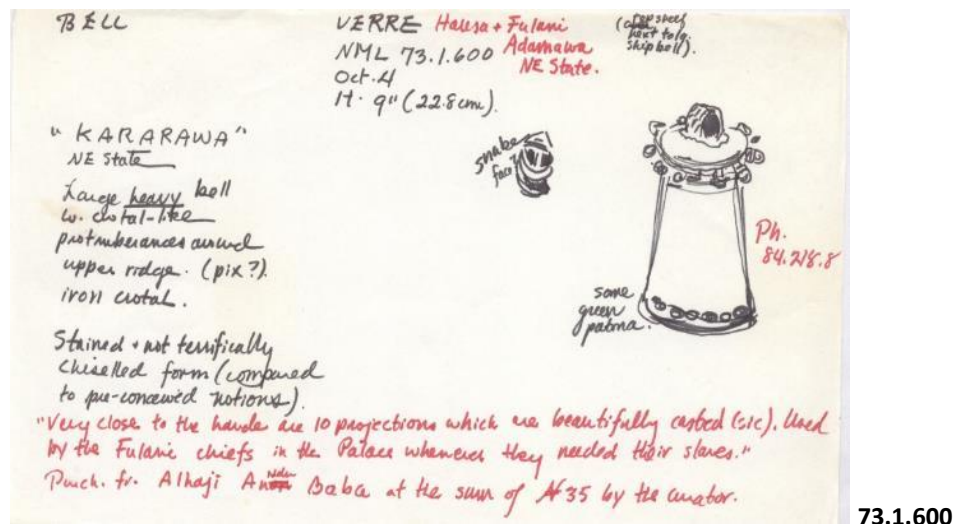 BELL
VERRE Hausa + Fulani
NML 73.1.600 Adamawa
Oct. 4 NE State.
H. 9" (22.8 cm).
( top shelf
next to lg.
ship bell).
"KARARAWA"
NE State
Large heavy bell
w. crotal-like
protruberances around
upper ridge. (pix?).
iron crotal.
snake
face?
Ph.
84.218.8
some
green
patina.
Stained + not terrifically
chiselled form (compared
to pre-conceived notions).
"Very close to the handle are 10 projections which are beautifully casted (sic). Used
by the Fulani chiefs in the Palace whenever they needed their slaves."
Purch. fr. Alhaji Baba at the sum of ₦35 by the curator.
73.1.600